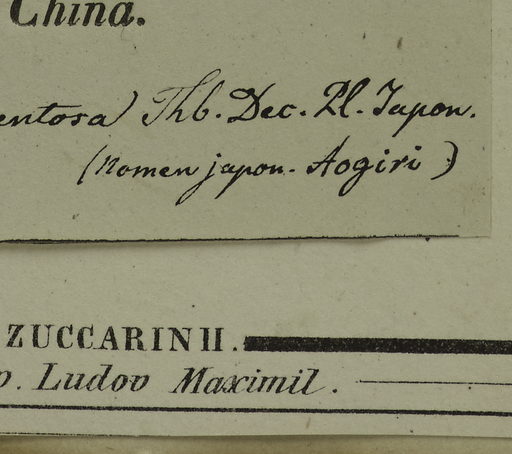 China.
entosa) Thb. Dec. Pl. Japon.
(Nomen japon. Aogiri)
ZUCCARINII.
p. Ludov Maximil.